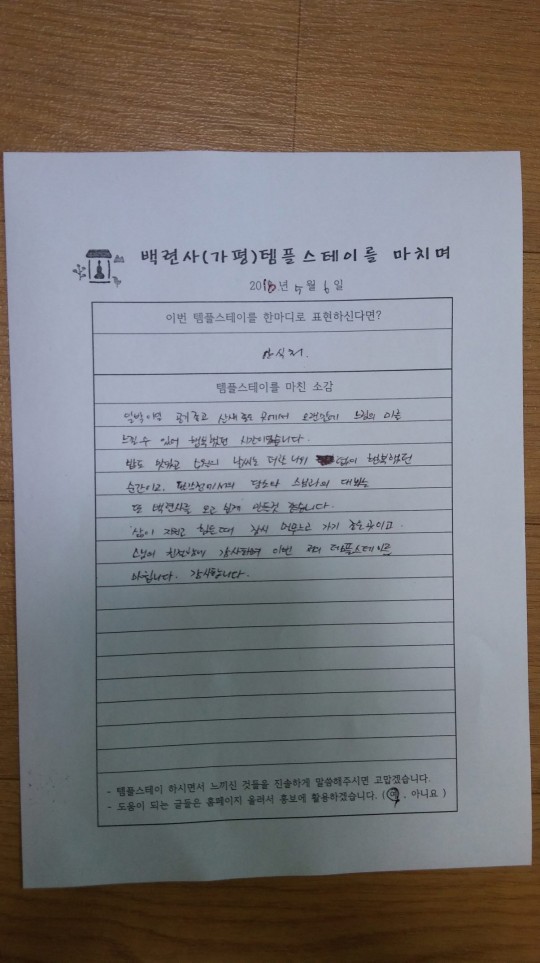 백련사(가평)템플스테이를 마치며
2018년 5월 6일
이번 템플스테이를 한마디로 표현하신다면?
안식처.
템플스테이를 마친 소감
공기좋고 산새 좋은 곳에서 오랜만에 느림의 미를
느낄 수 있어 행복했던 시간이었습니다.
밥도 맛있고 날씨도 더할 나위 없이 행복했던
순간이고, 스님과의 대화는
또 백련사를 오고 싶게 만든것 같습니다.
삶이 지치고 힘든 때 잠시 머무르고 가기 좋은 곳이고
스님의 감사하며 이번 템플스테이를
마칩니다. 감사합니다.
- 템플스테이 하시면서 느끼신 것들을 진솔하게 말씀해주시면 고맙겠습니다.
- 도움이 되는 글들은 홈페이지 올려서 홍보에 활용하겠습니다. (예, 아니요)